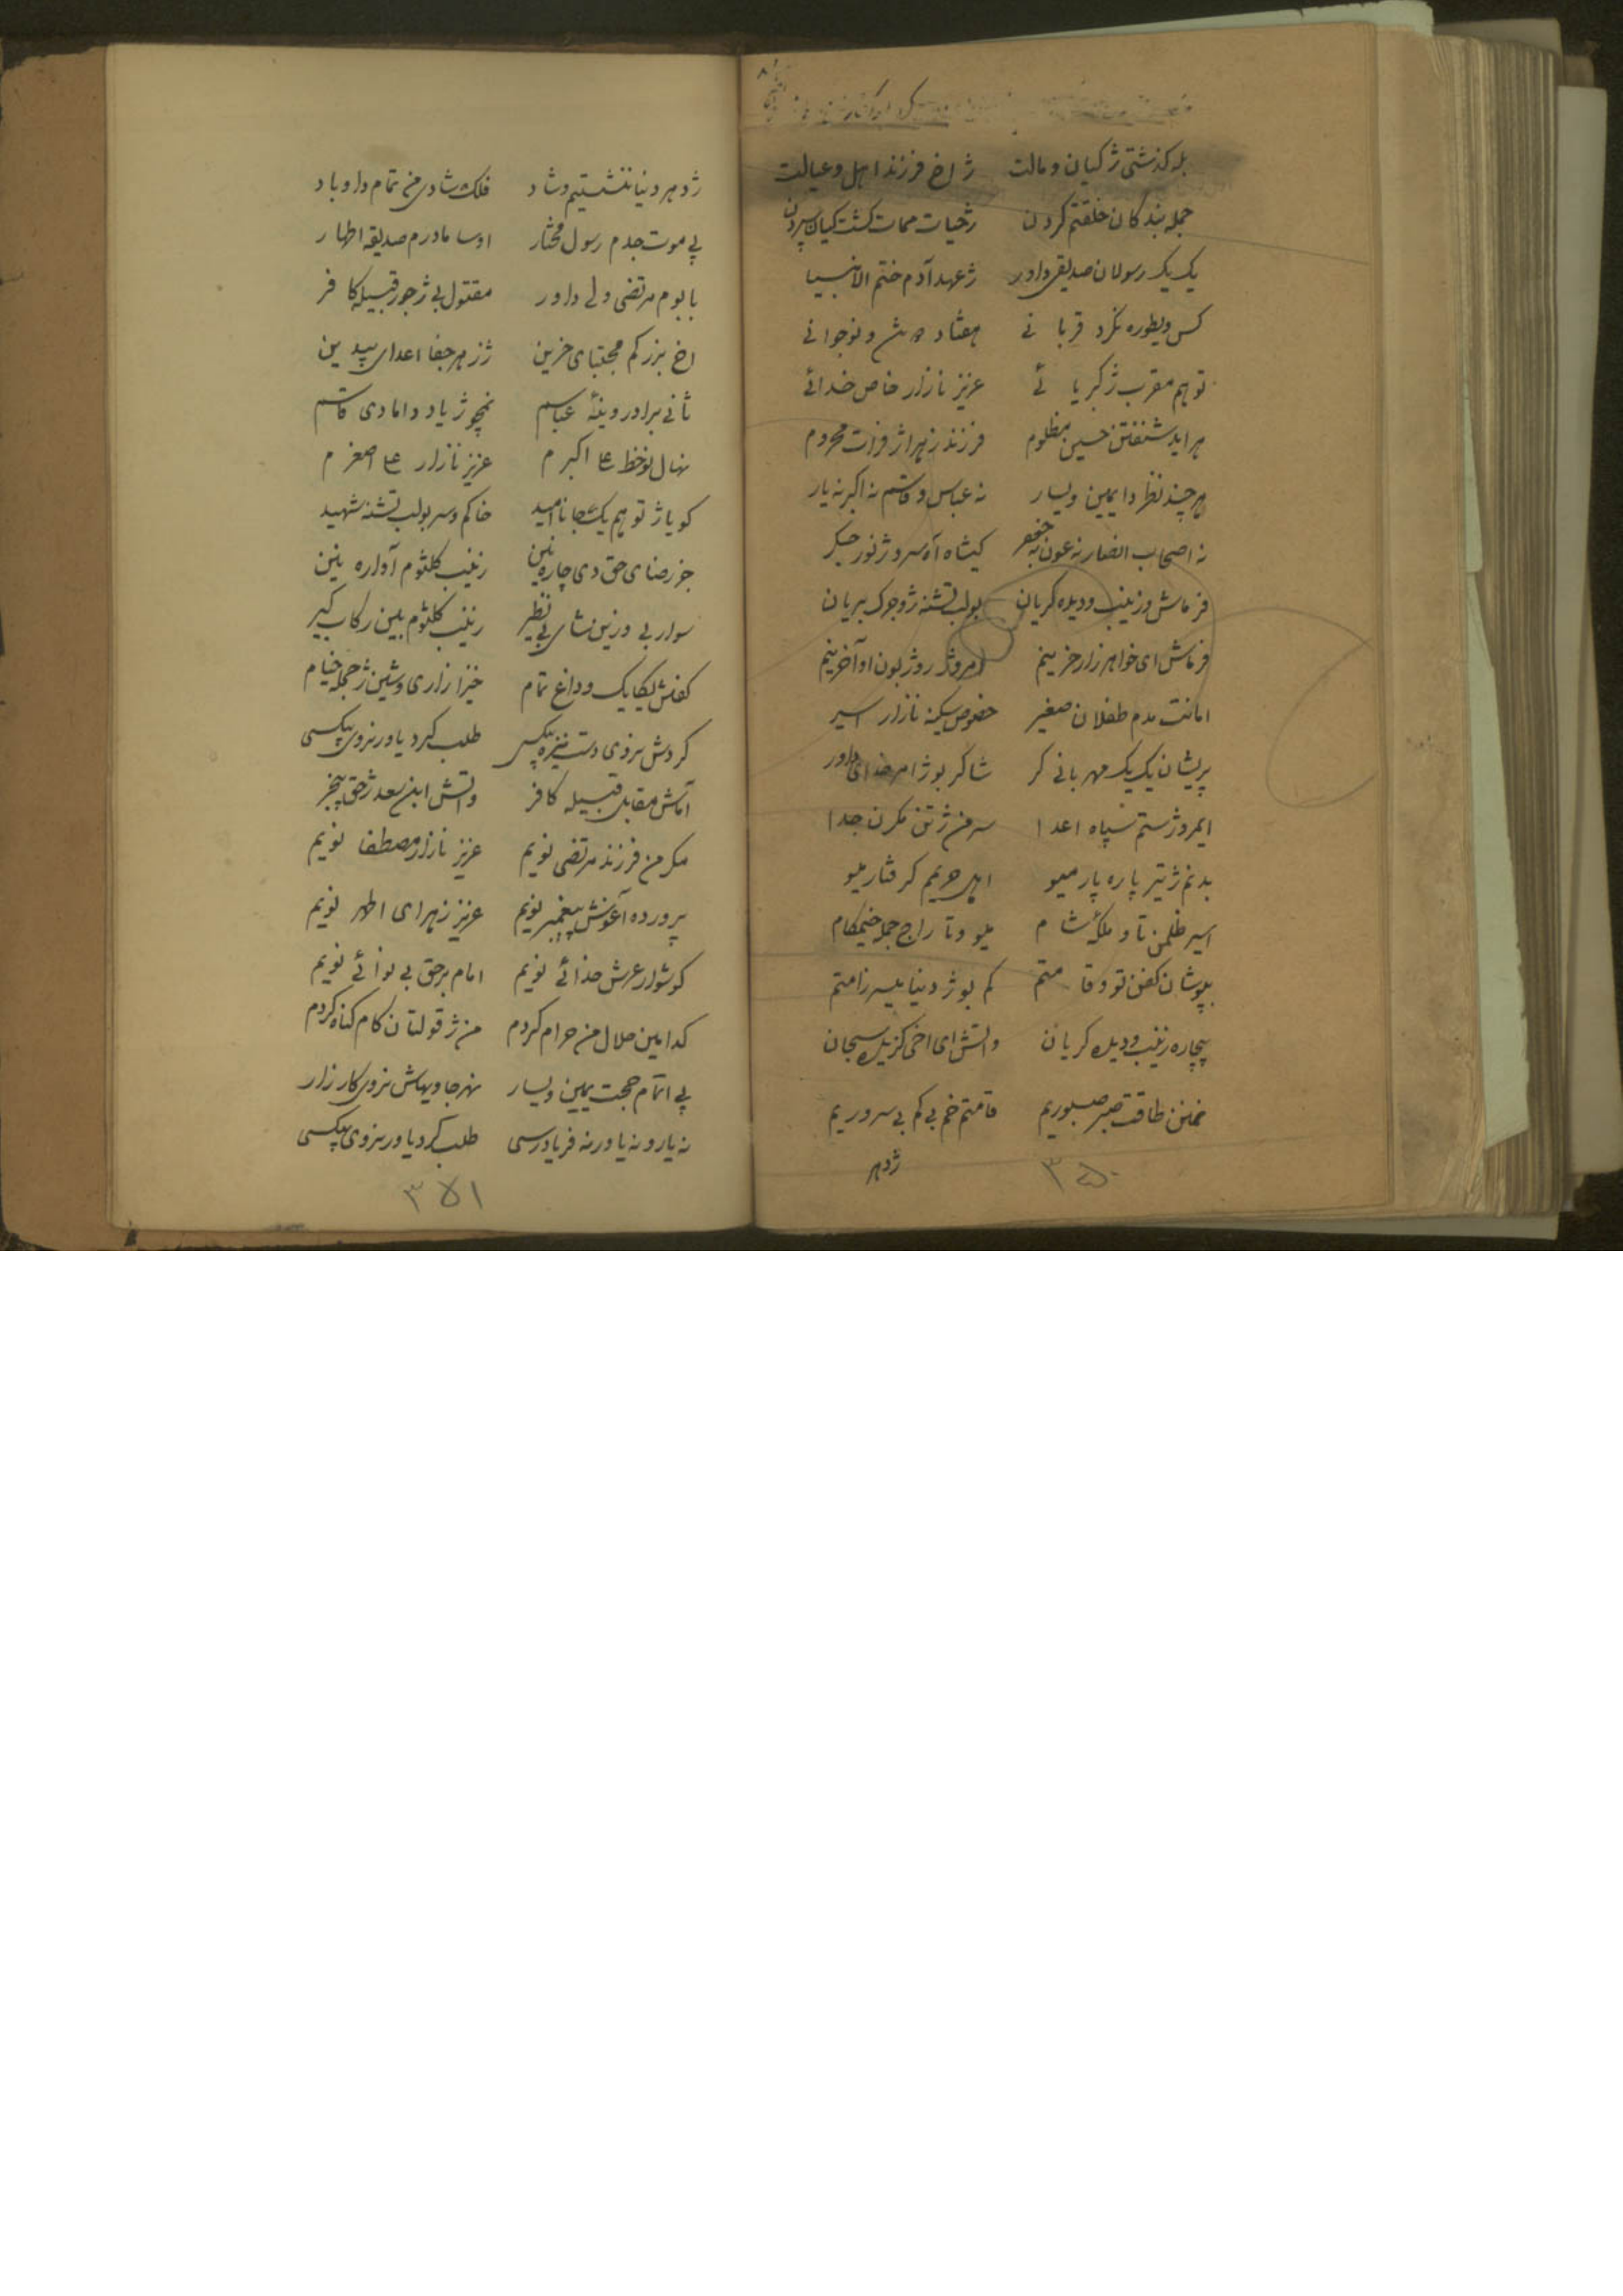 بله کذشتی ژ کیان و مالت ژ اخ فرزند اهل و عیالت
جمله بندکان خلقتم کردن ژ حیات ممات کشت کیان سپردن
یک یک رسولان صدیق داور ژ عهد آدم ختم الانبیا
کس ویطوره نکرد قربانی هفتاد و نوجوانی
تو هم مقرب ژ کبریائے عزیز نازار خاص خدائے
هر اید شنفتن حسین مظلوم فرزند زهرا ژ فرات محروم
هر چند نظر دا یمین و یسار نه عباس و قاسم نه اکبر نه یار
نه اصحاب انصار نه عون نه جعفر کیشاه آه سرو ژ نور جکر
فرماش و زینب و دیده کریان بولب تشنه ژ وجرک بریان
فرماش ای خواهر زار حزینم امروژ روژ بون او آخرینم
امانت مدم طفلان صغیر خصوص سکینه نازار اسیر
پریشان یک یک مهربانی کر شاکر بو ژ امر خدای داور
ایمروژ ستم سپاه اعدا سر من ژ تن مکرن جدا
بدنم ژ تیر پاره پار میو اهل حریم کرفتار میو
اسیر ظلمن تا و ملک شام میو و تاراج جمله خیمکام
بپوشان کفن تو و قامتم کم بو ژ دنیا بسر زامتم
بیچاره زینب و دیده کریان واتش ای اخی کزیده سبحان
نمنن طاقت صبر صبوریم قامتم خم بی کم بی سروریم
ژ دهر
۳۵۰
ژ دهر دنیا ننشستیم و شاد فلک شادی من تمام دا و باد
پی موت جدم رسول مختار اوسا مادرم صدیقه اطهار
بابوم مرتضی ولی داور مقتول بی ژ جور قبیله کافر
اخ بزرکم مجتبای حزین ژ زهر جفا اعدای بیدین
ثانی برادر وینهٔ عباسم نمچو ژ یاد دامادی قاسم
نهال نوخط علی اکبرم عزیز نازار علی اصغرم
کویا ژ تو هم یکجا ناامید خاکم و سر بولب تشنه شهید
جز رضای حق دی چاره نین زینب کلثوم آواره بنین
سوار بی و زین شای بی نظیر زینب کلثوم بین رکاب کیر
کفتش یکایک وداغ تمام خیزا زاری و شین ژ جمله خیام
کردش نروی دست نیزه بیکسی طلب کرد یاور نروی بیکسی
آماش مقابل قبیله کافر واتش ابن سعد ژ حق بیخبر
مکر من فرزند مرتضی نویم عزیز نازار مصطفا نویم
پرورده آغوش پیغمبر نویم عزیز زهرای اطهر نویم
کوشوار عرش خدائے نویم امام برحق بی نوائے نویم
کدامین حلال من حرام کردم من ژ قولتان کام کناه کردم
پی اتمام حجت یمین و یسار نهرجا ویهاش نروی کارزار
نه یار و نه یاور نه فریادرسی طلب کرد یاور نروی بیکسی
۳۵۱